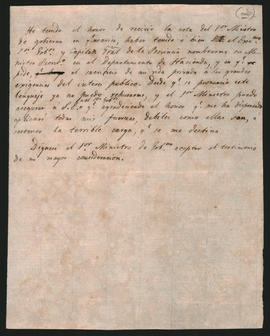 He tenido el honor de recivir la nota del Sr. Ministro
de gobierno en q.e haver tenido á bien el Exmo
Sr. Gob.r y Capitan Gral de la Provincia nombrarme su Mi-
nistro en el Departamento de Hacienda, y en q.e
pide, el sacrificio de mi vida privada á las grandes
exigencias del interes publico. Desde q.e se pronuncia este
lenguaje ya no puedo rehusarme, y el Sr. Ministro puede
asegurar á S.E. q.e agradeciendo el honor q.e me ha dispensado
aplicaré todas mis fuerzas, debiles como ellas son, á
sostener la terrible carga, q.e se me destina
Dignese el Sr. Ministro de Gob.no aceptar el testimonio
de mi mayor consideracion.